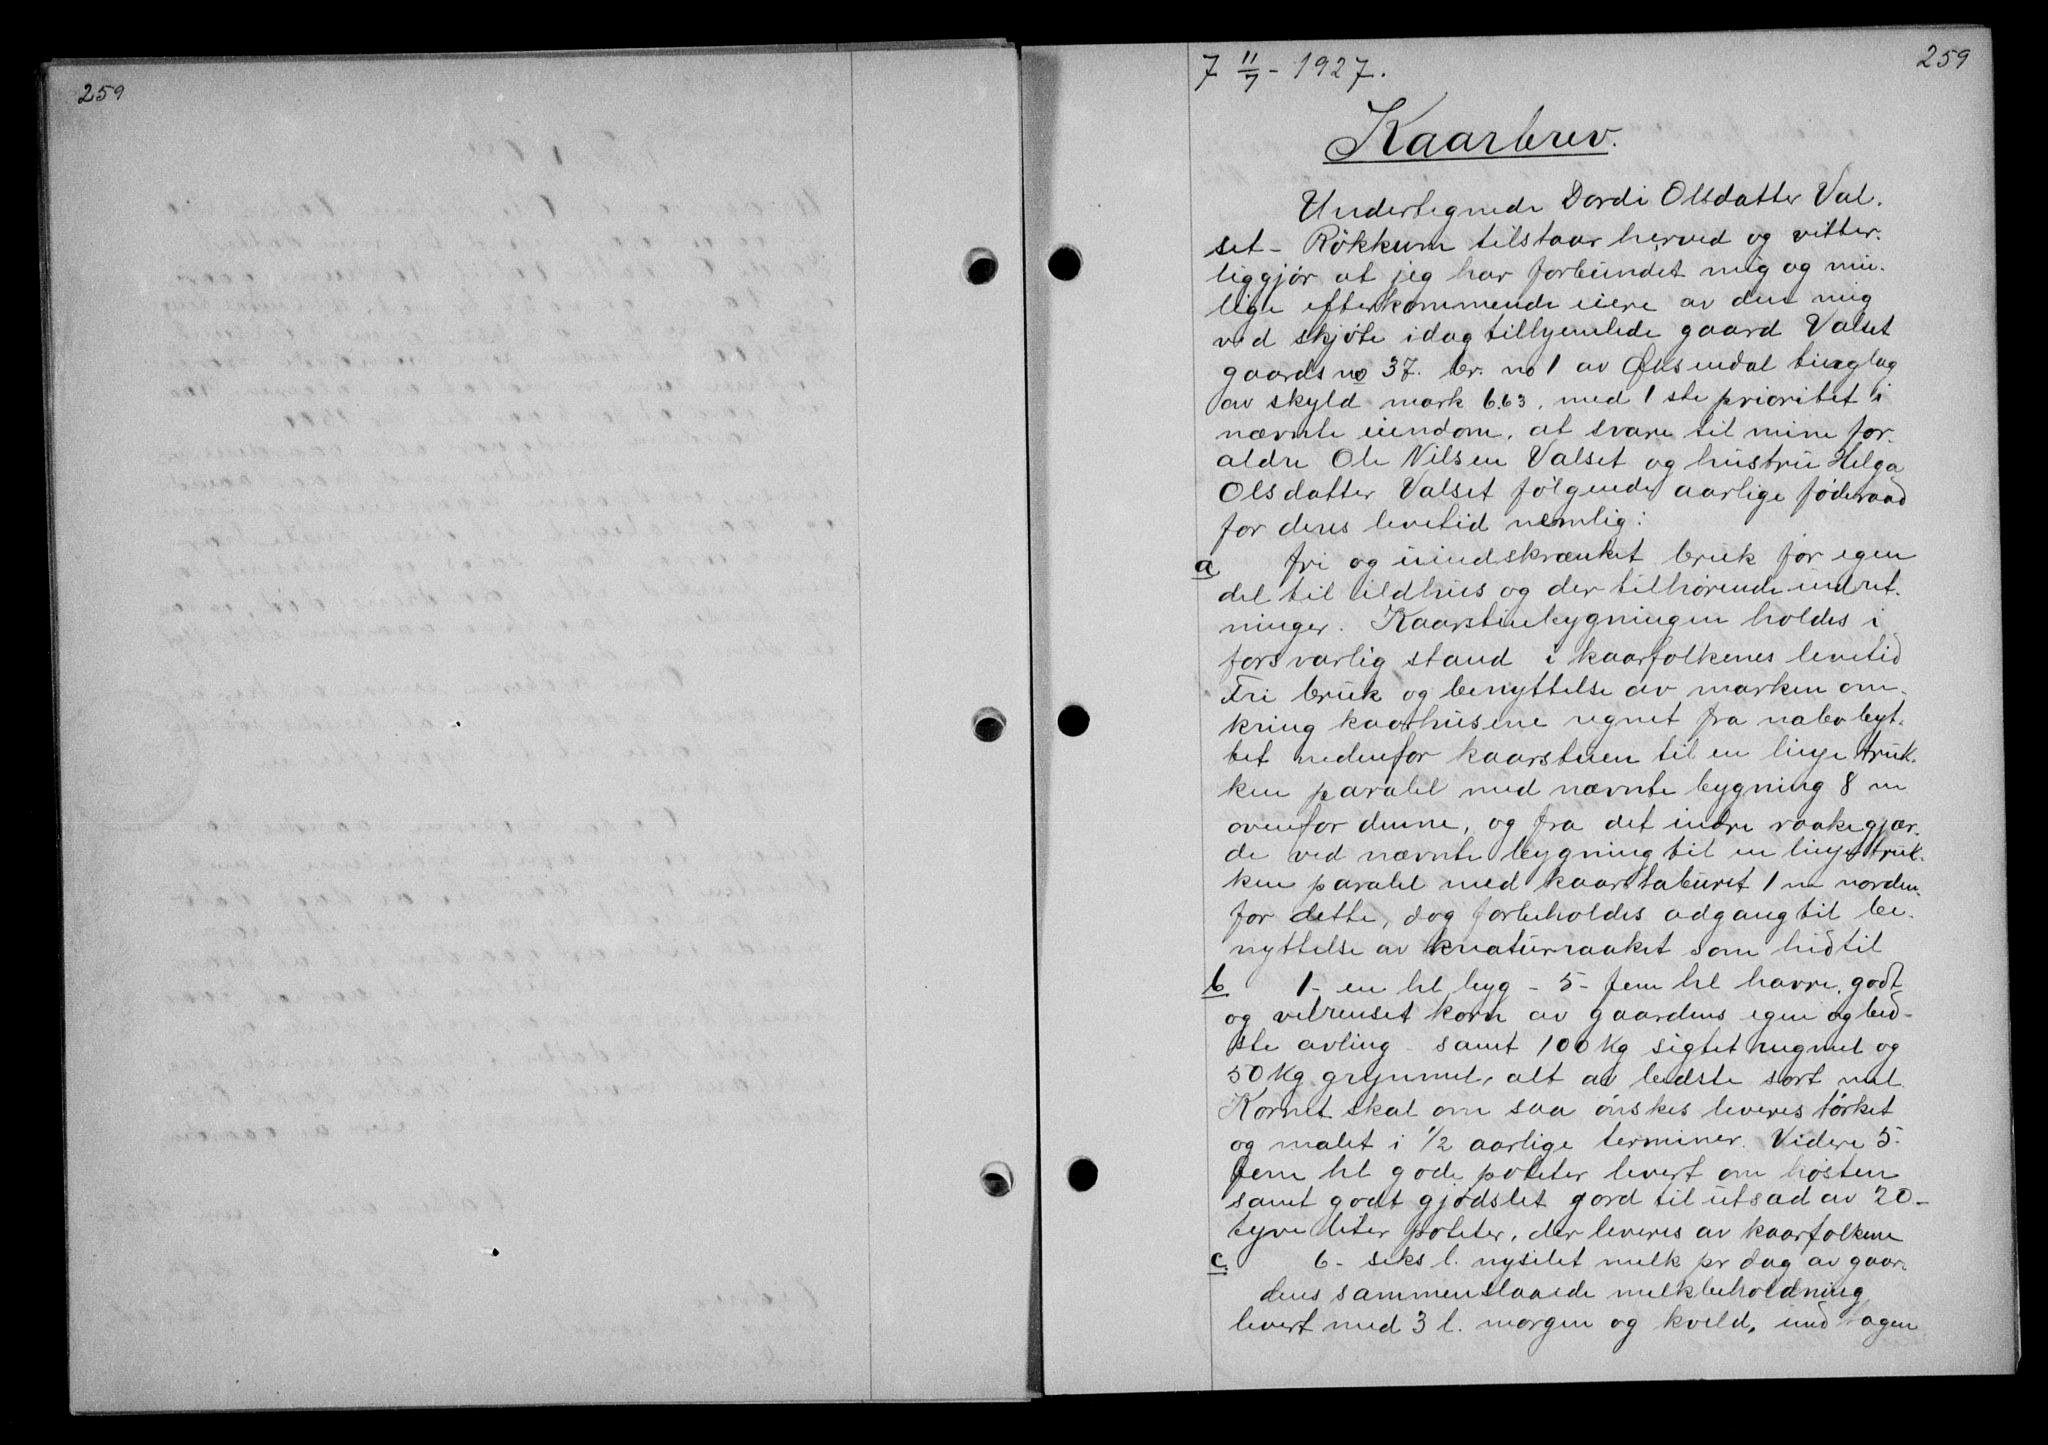 259
7 11/7 - 1927.
259
Kaarbrev.
Undertegnede Dordi Olsdatter Val-
set - Røkkum tilstaar herved og vitter-
liggjør at jeg har forbundet mig og mu-
lige efterkommende eiere av den mig
ved skjøte idag tilhjemlede gaard Valset
gaards no 37. br. no 1 av Øksendal tinglag
av skyld mark 6.63, med 1ste prioritet i
nævnte eiendom, at svare til mine for-
ældre Ole Nilsen Valset og hustru Helga
Olsdatter Valset følgende aarlige føderaad
for deres levetid nemlig:
a fri og uindskrænket bruk for egen
del til ildhus og der tilhørende indret-
ninger. Kaarstubygningen holdes i
forsvarlig stand i kaarfolkenes levetid
Fri bruk og benyttelse av marken om-
kring kaarhusene regnet fra nabobyt-
tet nedenfor kaarstuen til en linje truk-
ken paralel med nævnte bygning 8 m
ovenfor denne, og fra det indre raakegjær-
de ved nævnte bygning til en linje truk-
ken paralel med kaarstaburet 1 m norden-
for dette, dog forbeholdes adgang til be-
nyttelse av kreaturraaket som hidtil
b 1- en hl byg - 5- fem hl havre, godt
og velrenset korn av gaardens egen og bed-
ste avling - samt 100 Kg sigtet rugmel og
50 Kg grynmel, alt av bedste sort mel
Kornet skal om saa ønskes leveres tørket
og malet i 1/2 aarlige terminer. Videre 5-
fem hl gode poteter levert om høsten
samt godt gjødslet jord til utsæd av 20-
tyve liter poteter, der leveres av kaarfolkene
c. 6- seks l. nysilet melk pr dag av gaar-
dens sammenslaaede melkbeholdning
levert med 3 l. morgen og kveld, undtagen